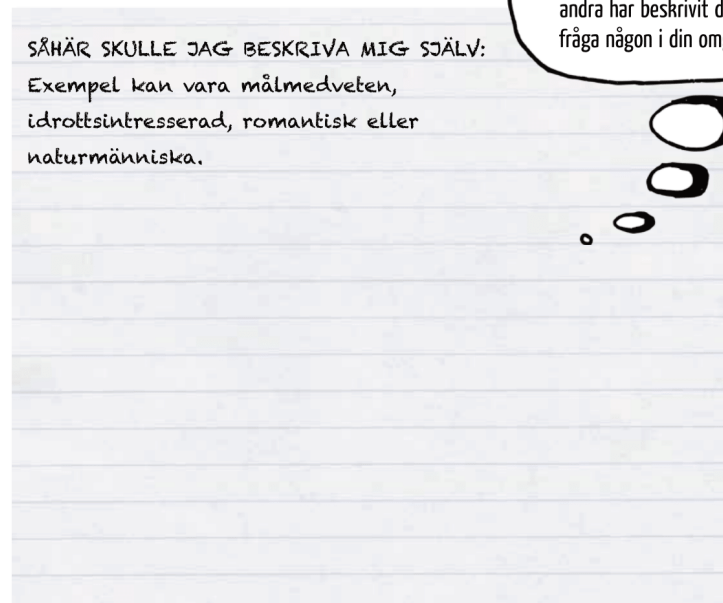 andra har beskrivit
fråga någon i din
SÅHÄR SKULLE JAG BESKRIVA MIG SJÄLV:
Exempel kan vara målmedveten,
idrottsintresserad, romantisk eller
naturmänniska.